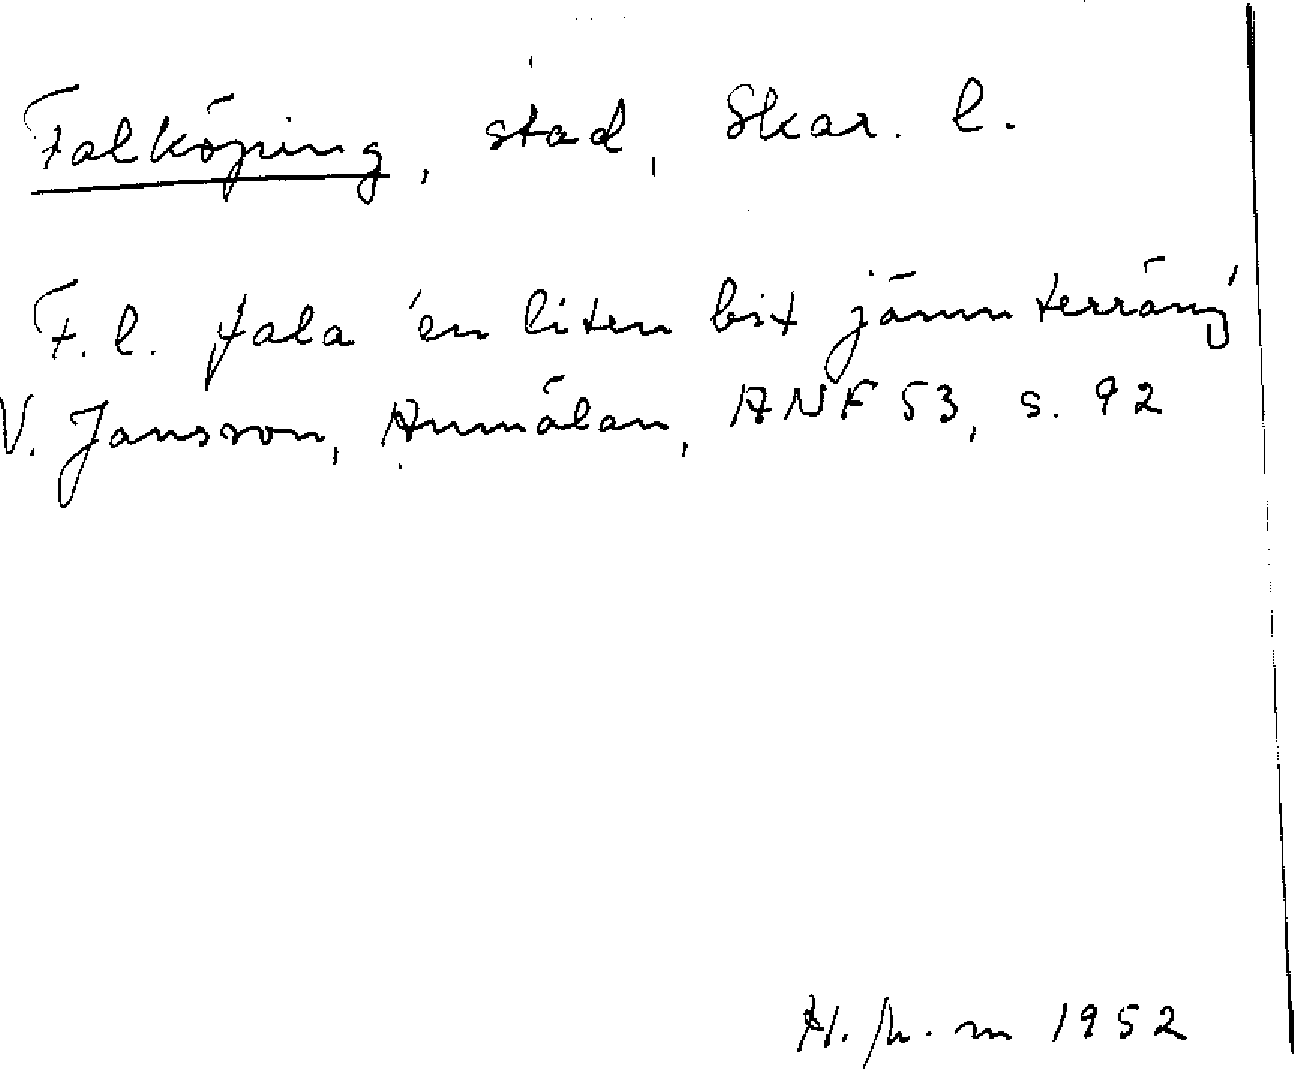 Falköping, stad, Skar. l.
F. l. fala 'en liten bit jämn terräng'
V. Jansson, Anmälan, ANF 53, s. 92
H. 1952